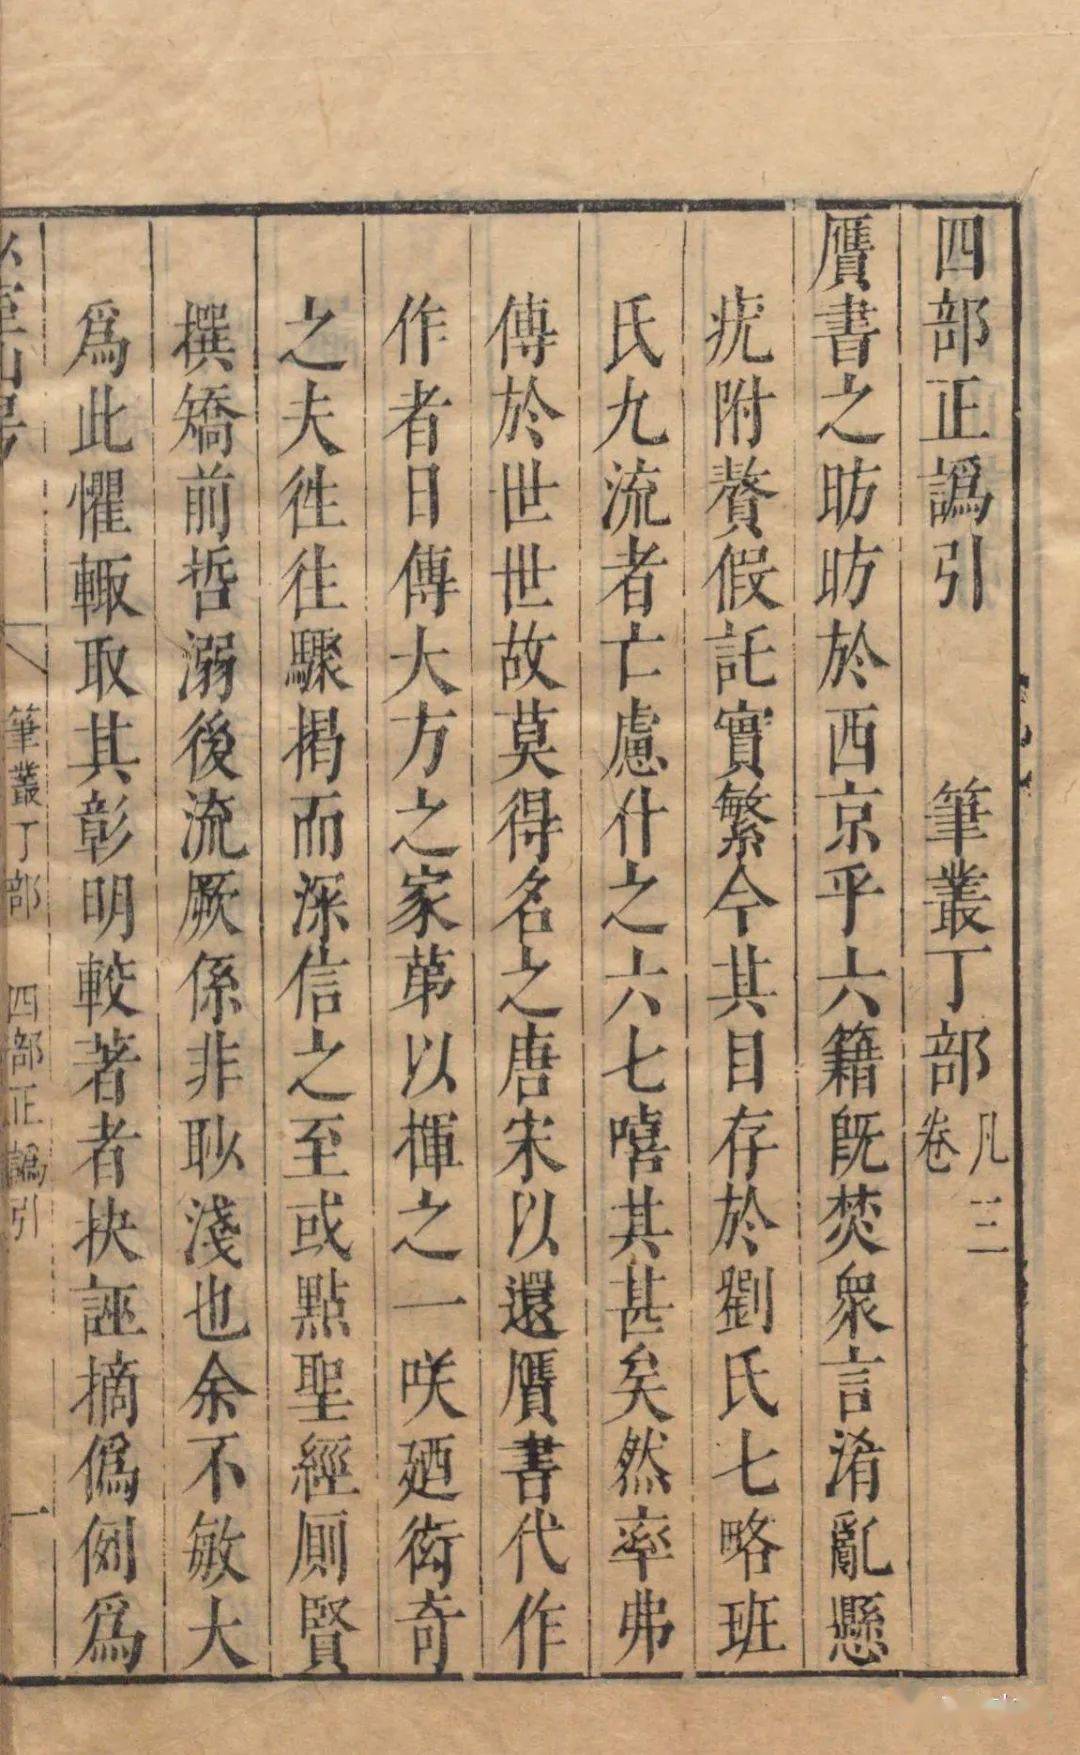 四部正譌引　筆叢丁部凡三卷
贋書之昉昉於西京乎六籍旣焚衆言淆亂懸
疣附贅假託實繁今其目存於劉氏七略班
氏九流者亡慮什之六七嘻其甚矣然率弗
傳於世世故莫得名之唐宋以還贋書代作
作者日傳大方之家苐以揮之一咲廼衒奇
之夫徃往驟揭而深信之至或點聖經厠賢
撰矯前哲溺後流厥係非眇淺也余不敏大
爲此懼輙取其彰明較著者抉誣摘僞列爲
筆叢丁部　四部正譌引　一